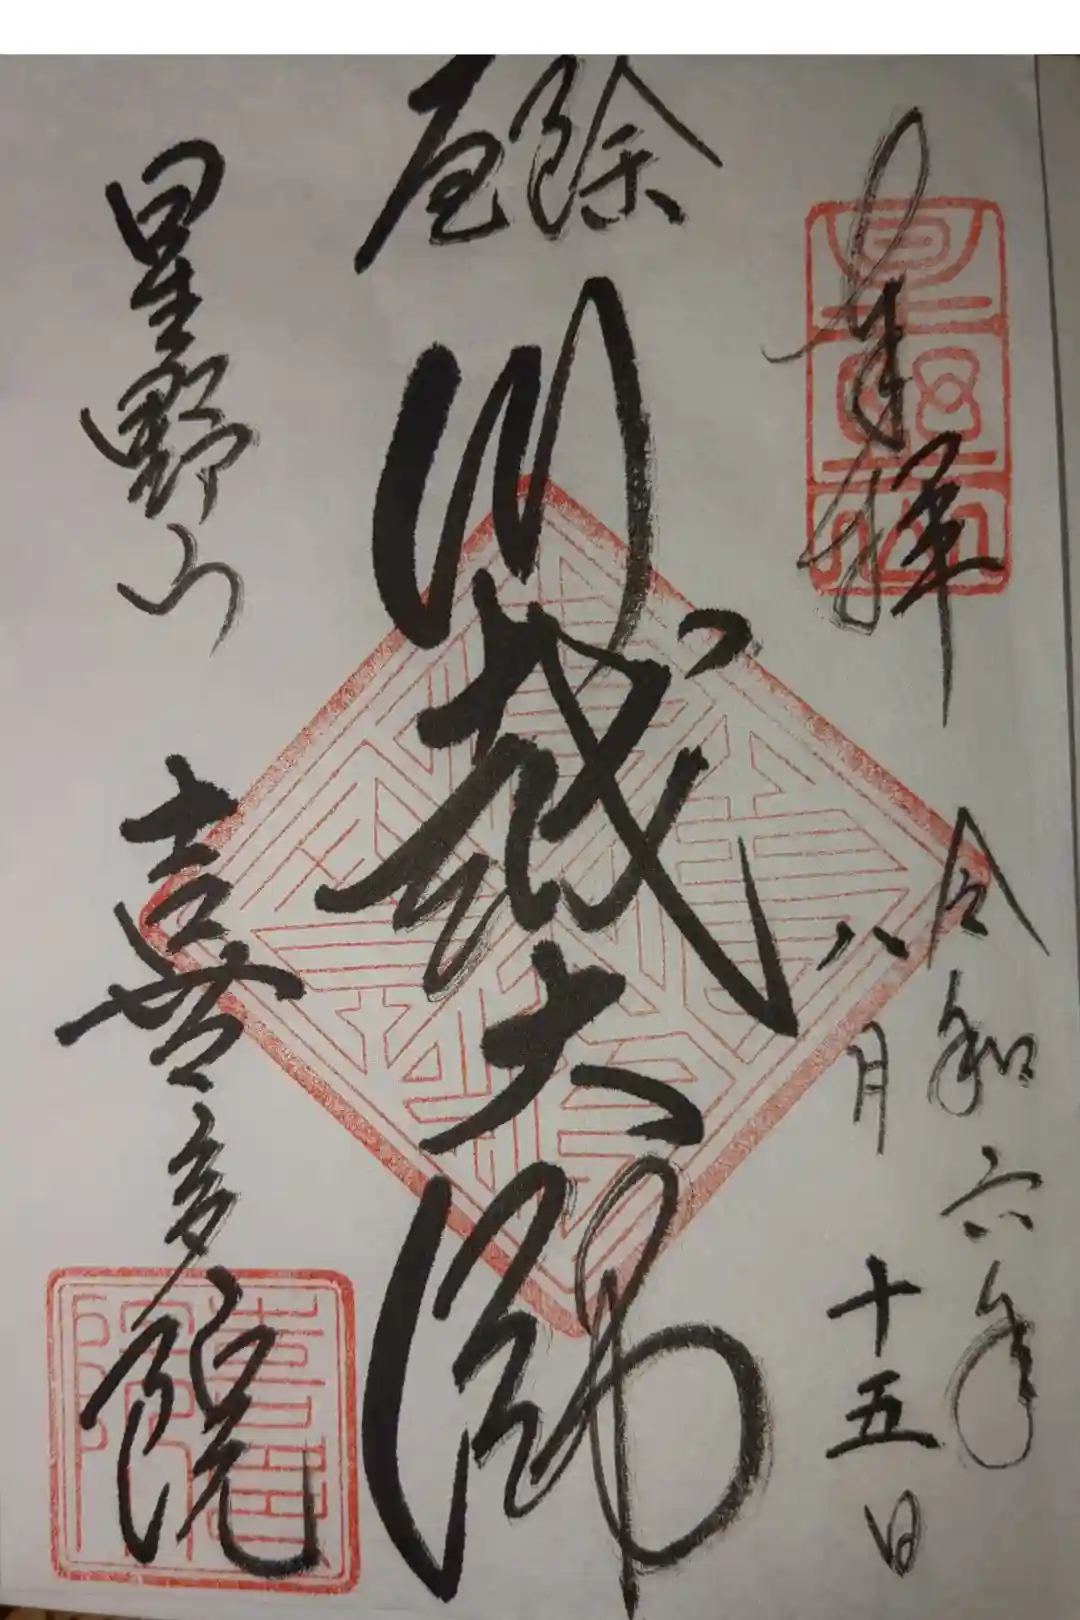 奉拝
令和六年
八月
十五日
厄除
川越大師
星野山 喜多院